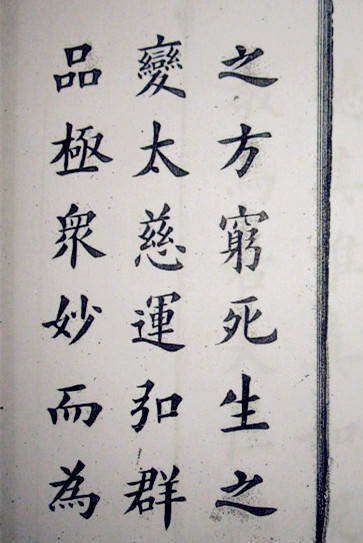 之方窮死生之
變太慈運弘群
品極衆妙而為